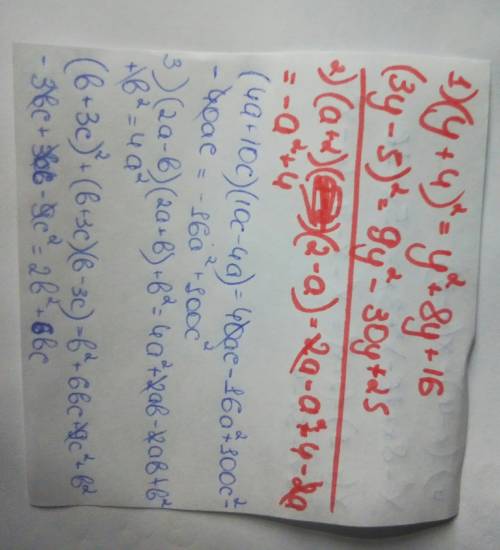 1) (y+4)² = y² + 8y + 16
(3y - 5)² = 9y² - 30y + 25
2) (a+2) (2-a) = 2a - a² + 4 - 2a
= -a² + 4
(4a + 10c)(10c - 4a) = 40ac - 16a² + 100c² -
- 40ac = -16a² + 100c²
3) (2a - b)(2a + b) + b² = 4a² + 2ab - 2ab + b²
+ b² = 4a²
(b + 3c)² + (b + 3c)(b - 3c) = b² + 6bc + 9c² + b²
- 3bc + 3bc - 9c² = 2b² + 6bc